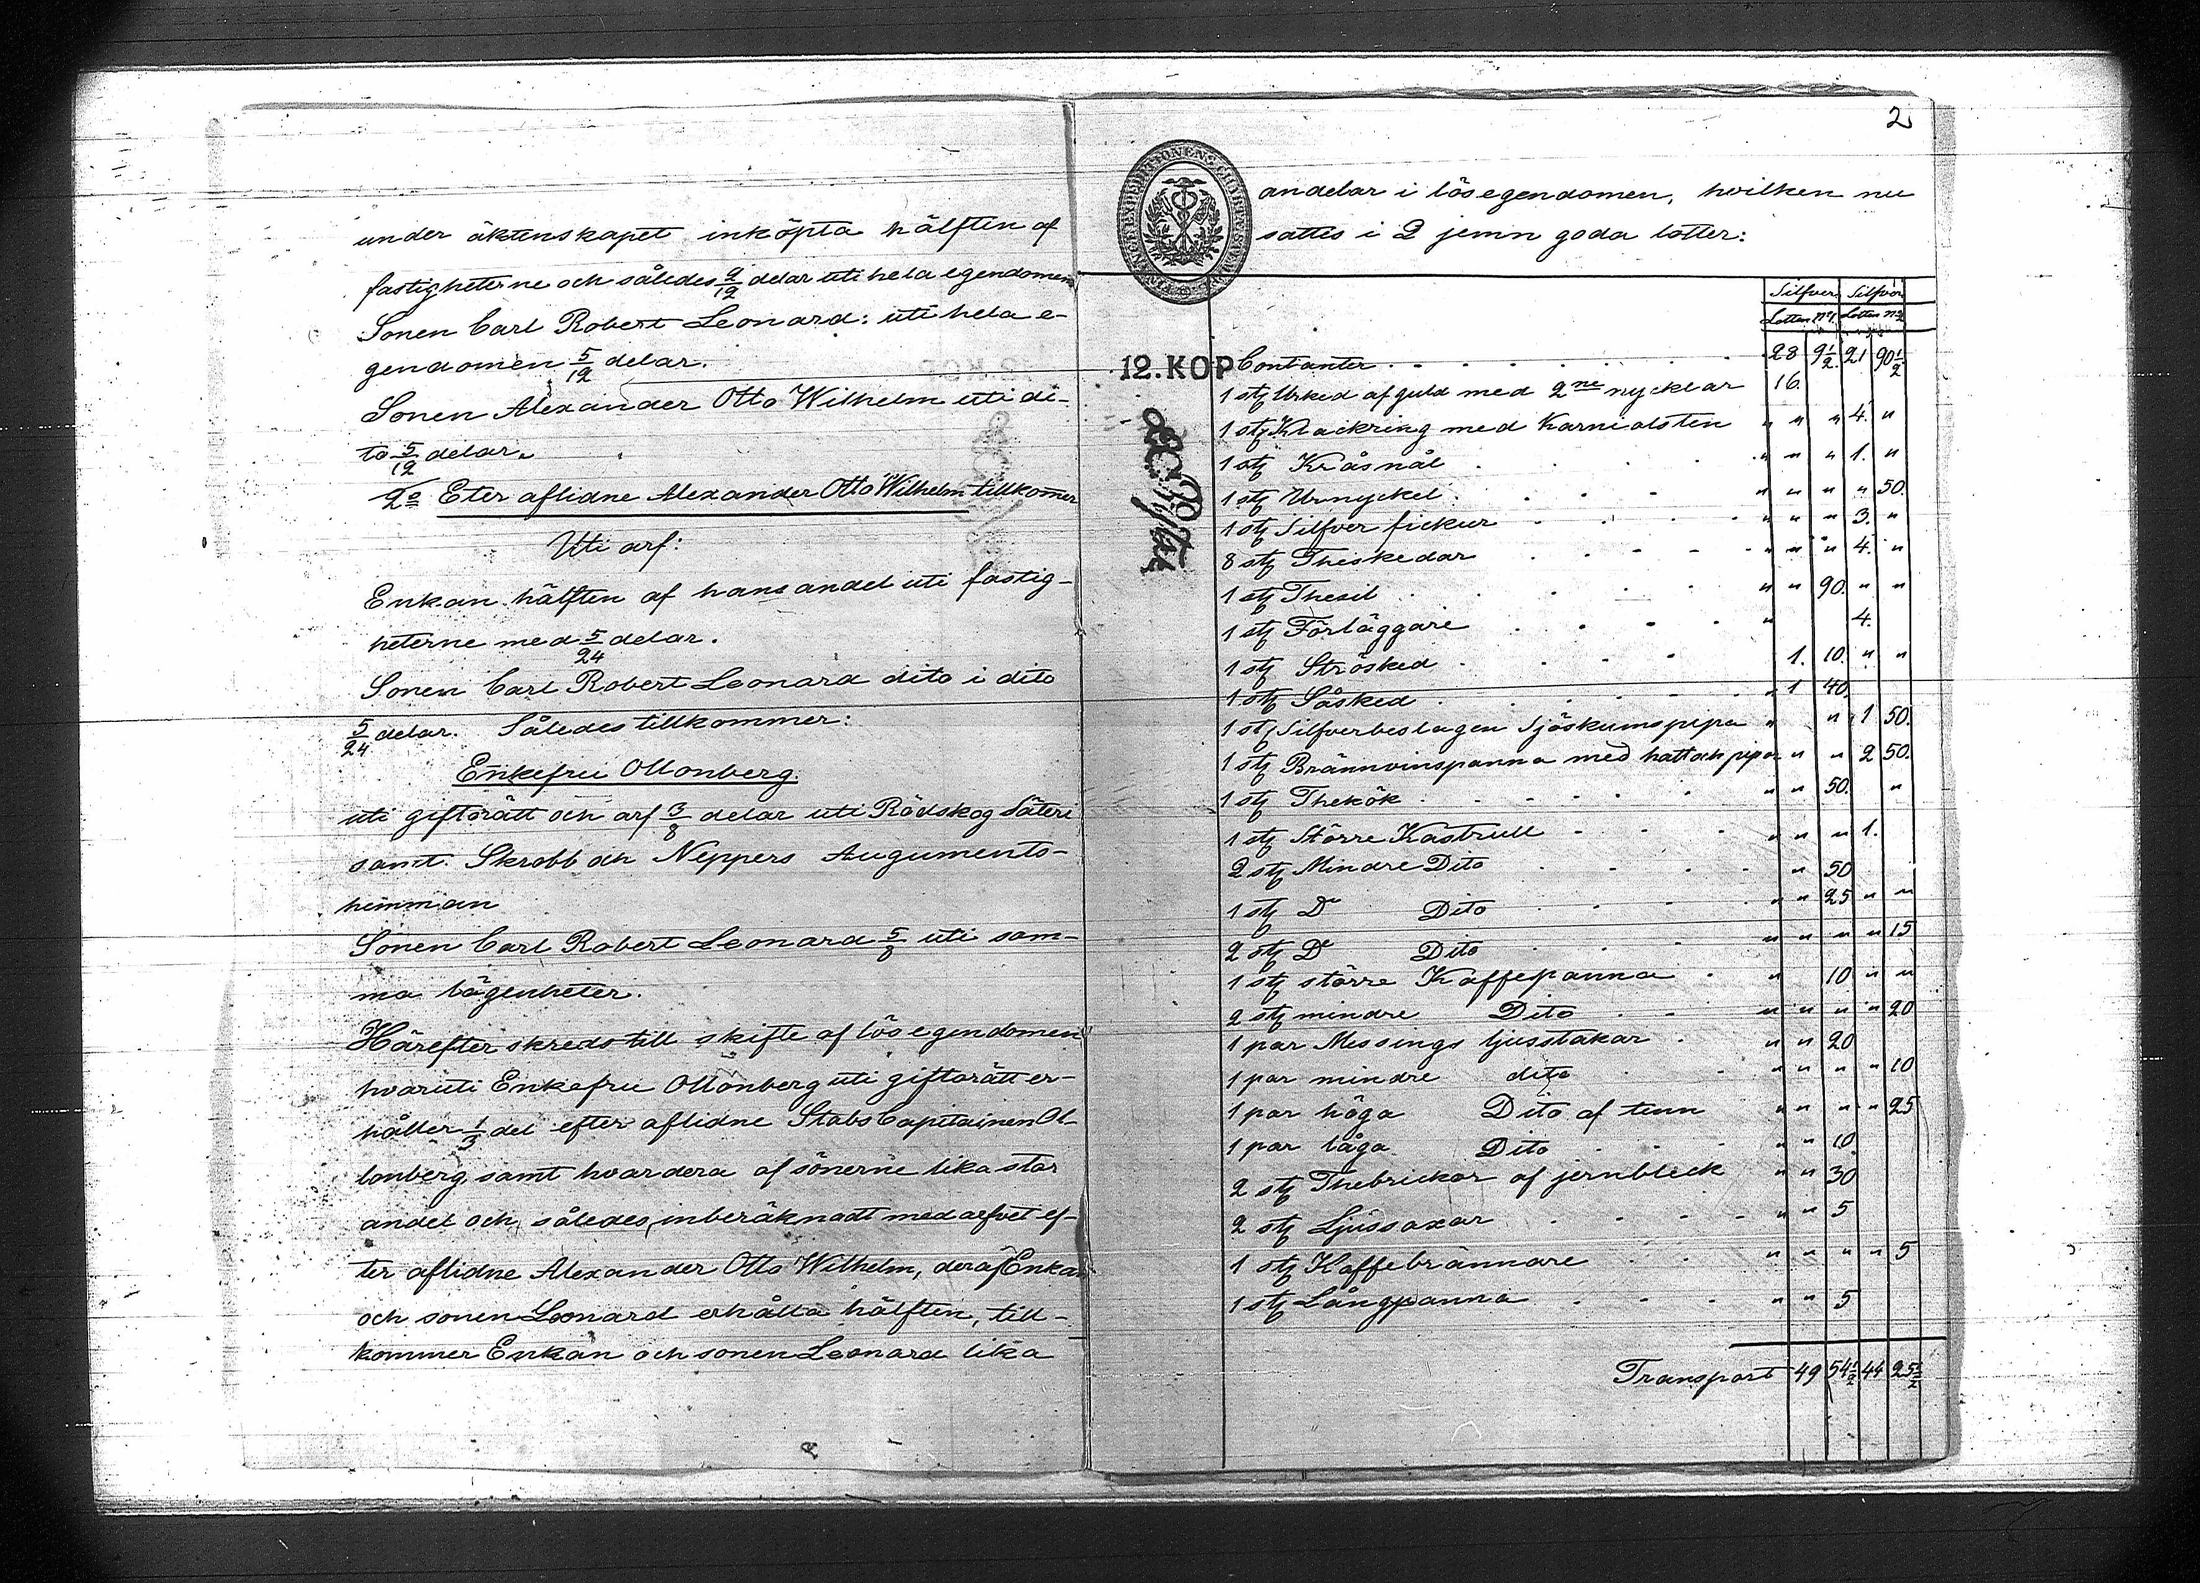 under äktenskapet inköpta hälften af
fastigheterne och således 2/12 delar uti hela egendomen
Sonen Carl Robert Leonard: uti hela e-
gendomen 5/12 delar.
Sonen Alexander Otto Wilhelm uti di-
to 5/12 delar.
2o Eter aflidne Alexander Otto Wilhelm tillkommer
Uti arf:
Enkan hälften af hans andel uti fastig-
heterne med 5/24 delar.
Sonen Carl Robert Leonard dito i dito
5/24 delar. Således tillkommer:
Enkefru Ollonberg
uti giftorätt och arf 3/8 delar uti Rödskog Säteri
samt Skrobb och Neppers Auguments-
hemman
Sonen Carl Robert Leonard 5/8 uti sam-
ma lägenheter.
Härefter skreds till skifte af lösegendomen
hvaruti Enkefru Ollonberg uti giftorätt er-
håller 1/3 del efter aflidne StabsCapitainen Ol-
lonberg samt hvardera af sönerne lika stor
andel och således, inberäknadt med arfvet ef-
ter aflidne Alexander Otto Wilhelm, deraf Enkan
och sonen Leonard erhålla hälften, till-
kommer Enkan och sonen Leonard lika
2
andelar i lösegendomen, hvilken nu
sattes i 2 jemn goda lotter:
Silfver Silfver
Lotten No 1. Lotten No 2
12. KOP
Contanter 28 9 1/2 21 90 1/2
1 st Urked af guld med 2ne nycklar 16.
1 st Klackring med Karniolsten " " " 4. "
1 st Kråsnål " " " 1. "
1 st Urnyckel " " " " 50.
1 st Silfver fickur " " " 3. "
8 st Theskedar " " " 4. "
1 st Thesil " " 90. " "
1 st Förläggare " 4.
1 st Strösked 1. 10. " "
1 st Såsked " 1 40.
1 st Silfverbeslagen Sjöskumspipa " " 1 50.
1 st Brännvinspanna med hatt och pipor " " 2 50.
1 st Thekök " " 50. "
1 st Större Kastrull " " " 1.
2 st Mindre Dito " 50
1 st Do Dito " " 25 " "
2 st Do Dito " " " " 15
1 st större Kaffepanna " 10 " "
2 st mindre Dito " " " " 20
1 par Messings ljusstakar " " 20
1 par mindre dito " " " " 10
1 par höga Dito af tenn " " " " 25
1 par låga Dito " " 10
2 st Thebrickor af jernbleck " " 30
2 st Ljussaxar " " 5
1 st Kaffebrännare " " " " 5
1 st Långpanna " " 5
Transport 49 54 1/2 44 25 1/2